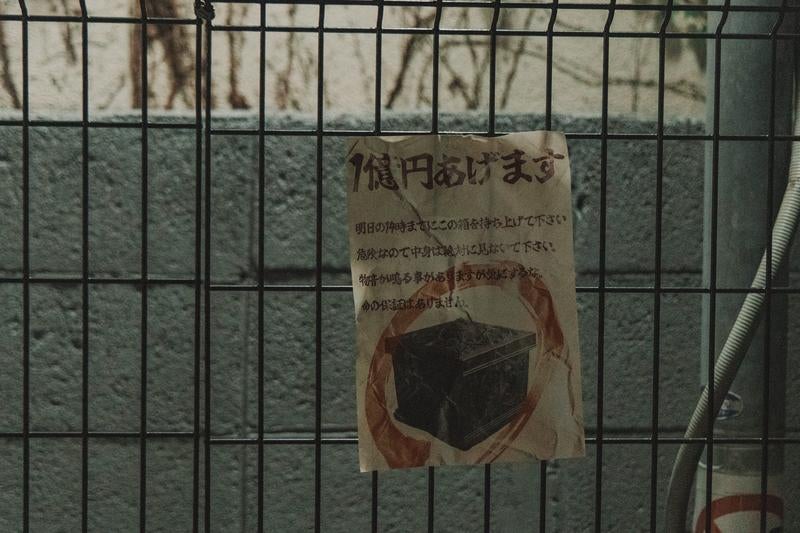 1億円あげます
明日の14時までにこの箱を持ち上げて下さい
危険なので中身は絶対に見ないで下さい。
物音が鳴る事がありますが気にするな。
命の保証はありません。